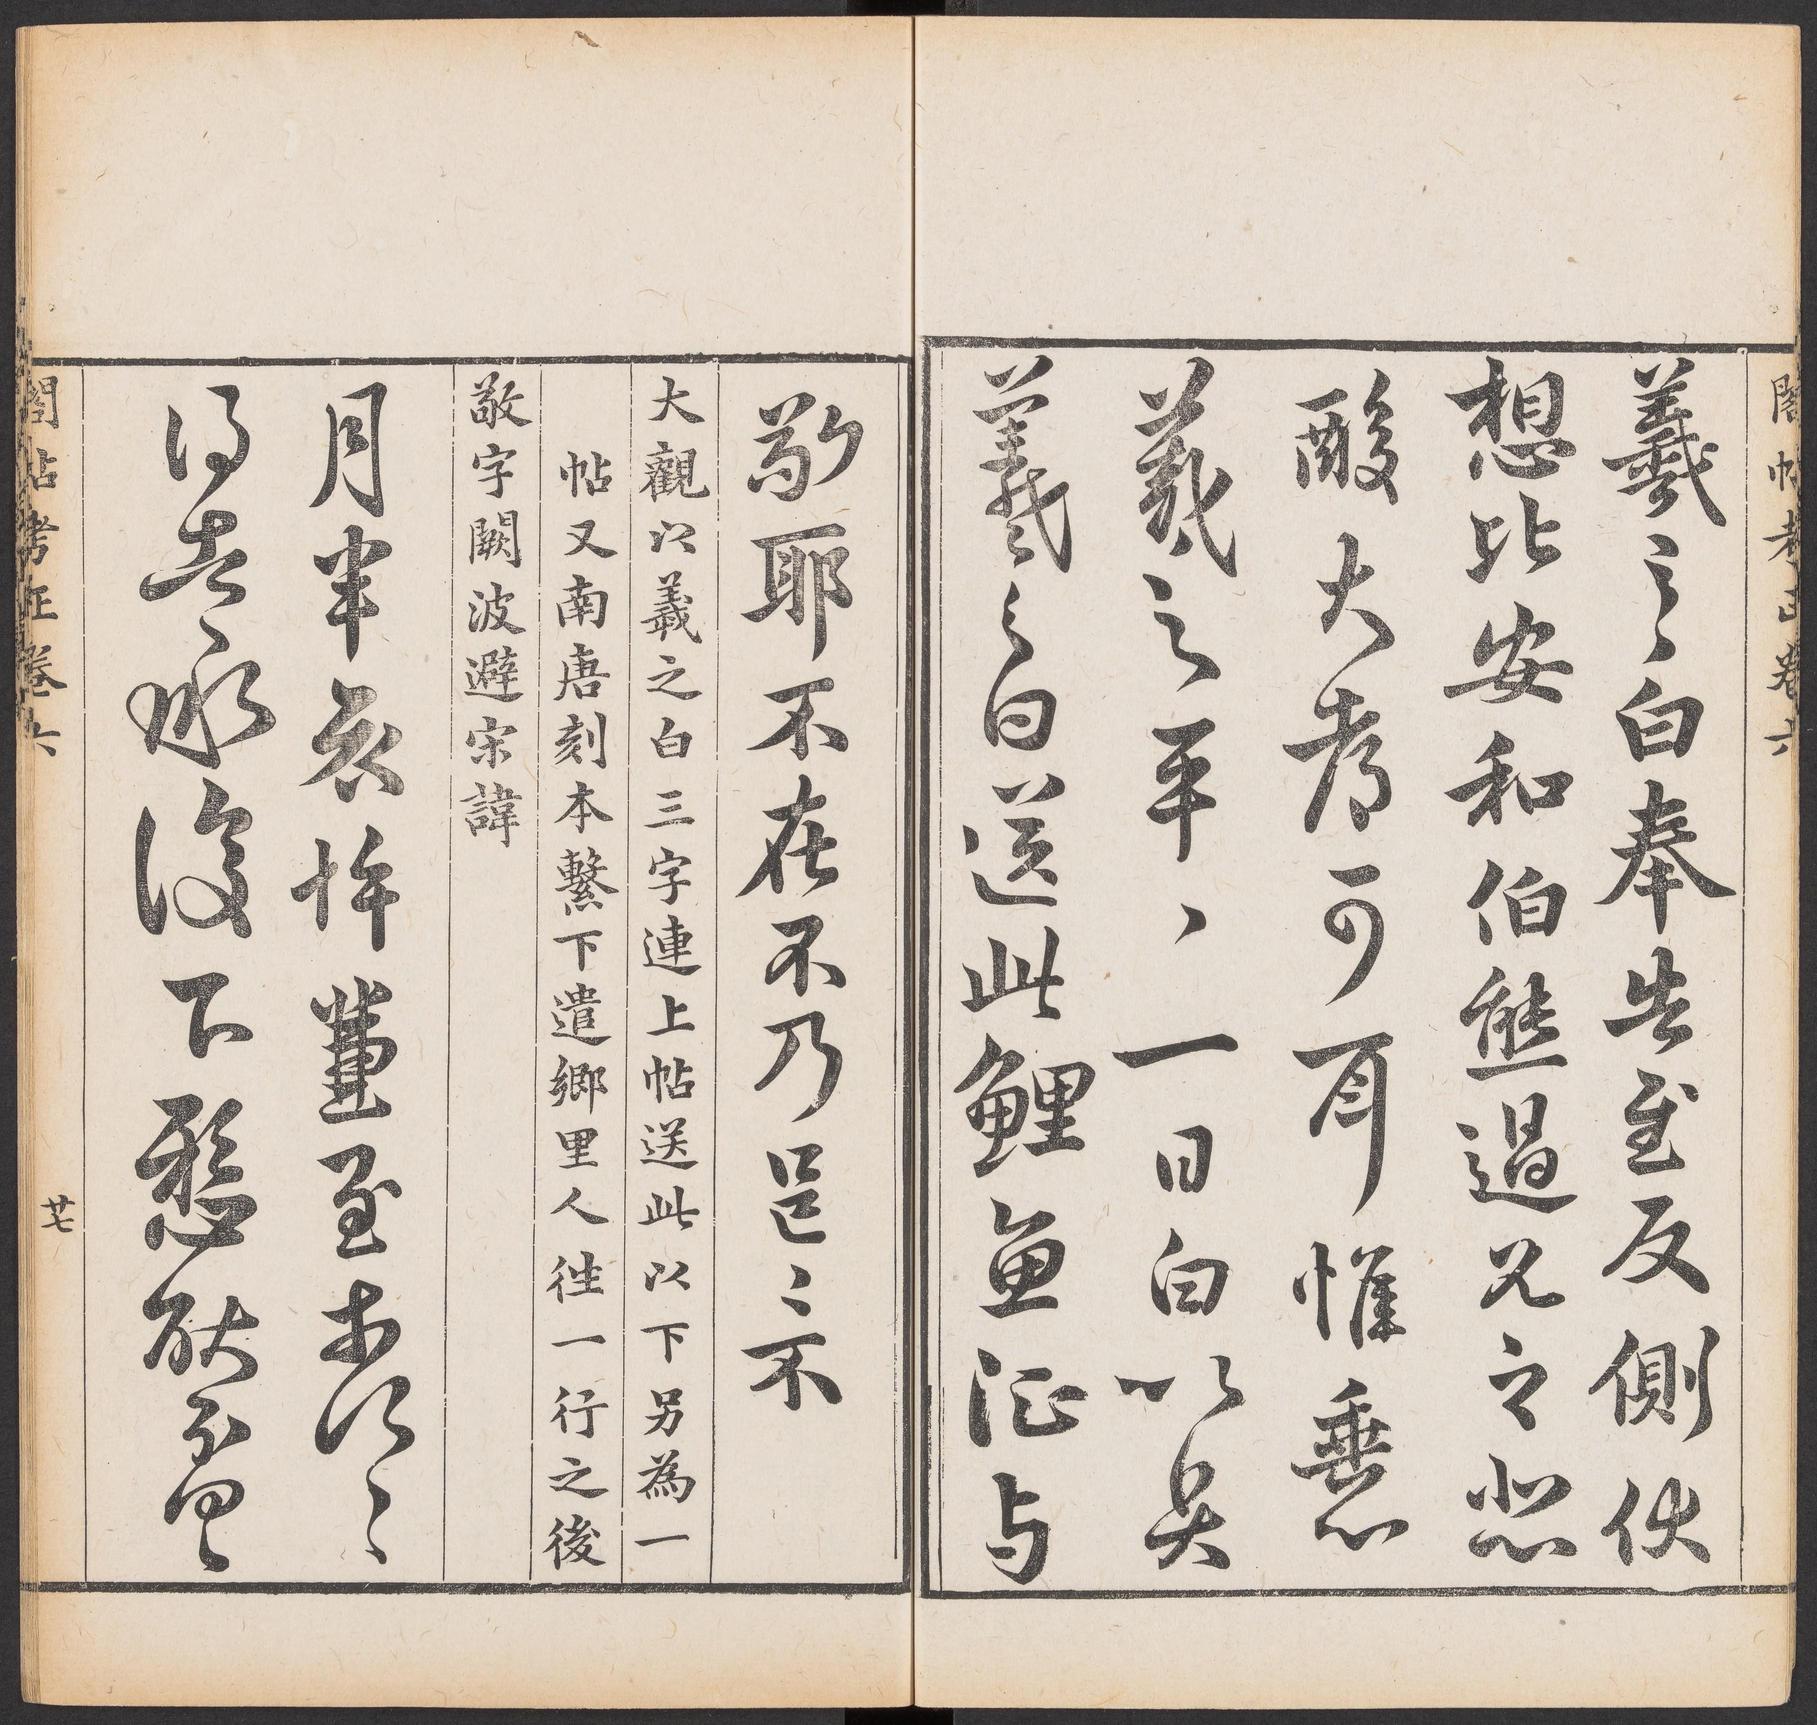 閣帖考正卷六
羲之白奉告至反側伏
想比安和伯熊過見之悲
酸大都可耳惟垂心
羲之平、一日白以具
羲之白送此鯉魚征与
敬耶不在不乃邑〻不
大觀以羲之白三字連上帖送此以下另為一
帖又南唐刻本繫下遣鄉里人往一行之後
敬字闕波避宋諱
月半哀悼兼至奈何〻
得告承復下懸耿不
閣帖考正卷六
廿七